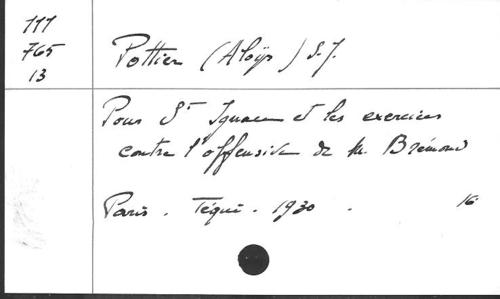 111
765
13
Pottier (Aloÿs) S.J.
Pour St Ignace et les exercices
contre l'offensive de M. Brémond
Paris. Téqui. 1930. 16